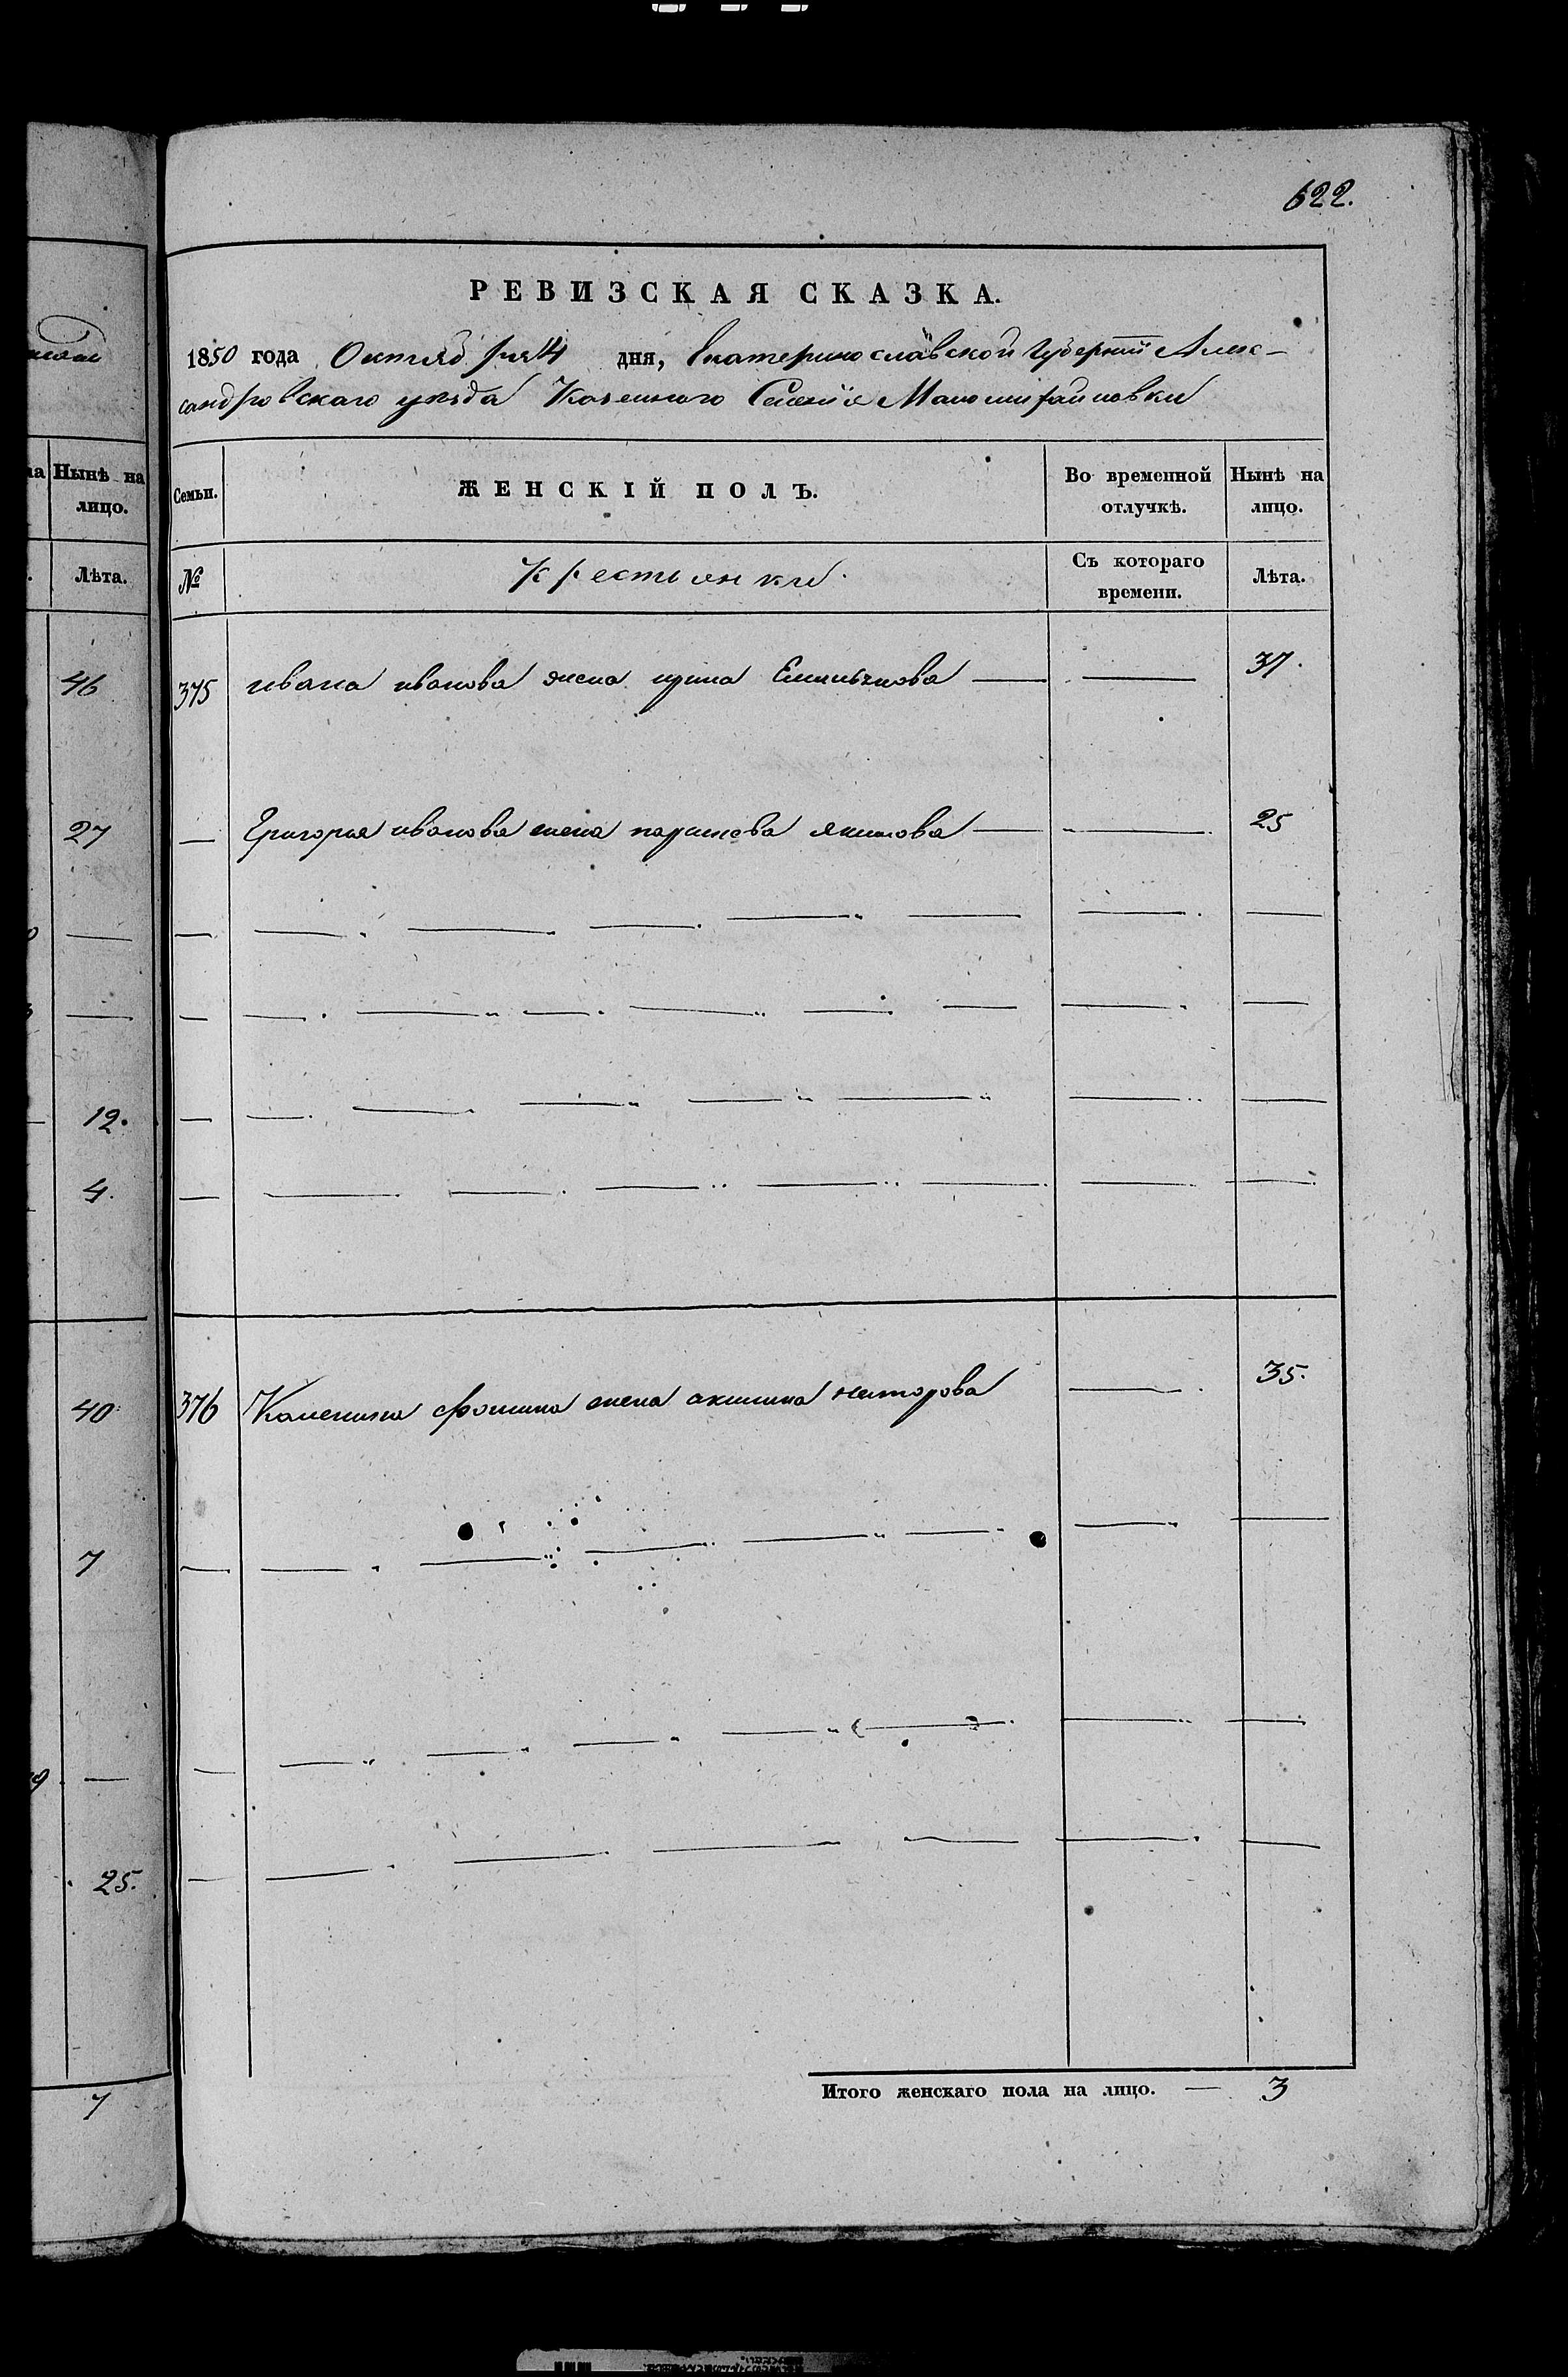 622.
РЕВИЗСКАЯ СКАЗКА.
1850 года Октября 4 дня, Екатеринославской Губернии Алек-
сандровского уезда Казенного Селения Маломихайловки
на Нынѣ на лицо.
Лѣта.
46
27
12.
4.
40
7
25.
7
Семьи. ЖЕНСКІЙ ПОЛЪ. Во временной отлучкѣ. Нынѣ на лицо.
№ Крестьянки. Съ котораго времени. Лѣта.
375 ивана иванова жена ирина Емельянова — — 37.
— Григорья иванова жена параскева якимова — — 25
376 фомина жена акилина несторова — 35.
Итого женскаго пола на лицо. — 3